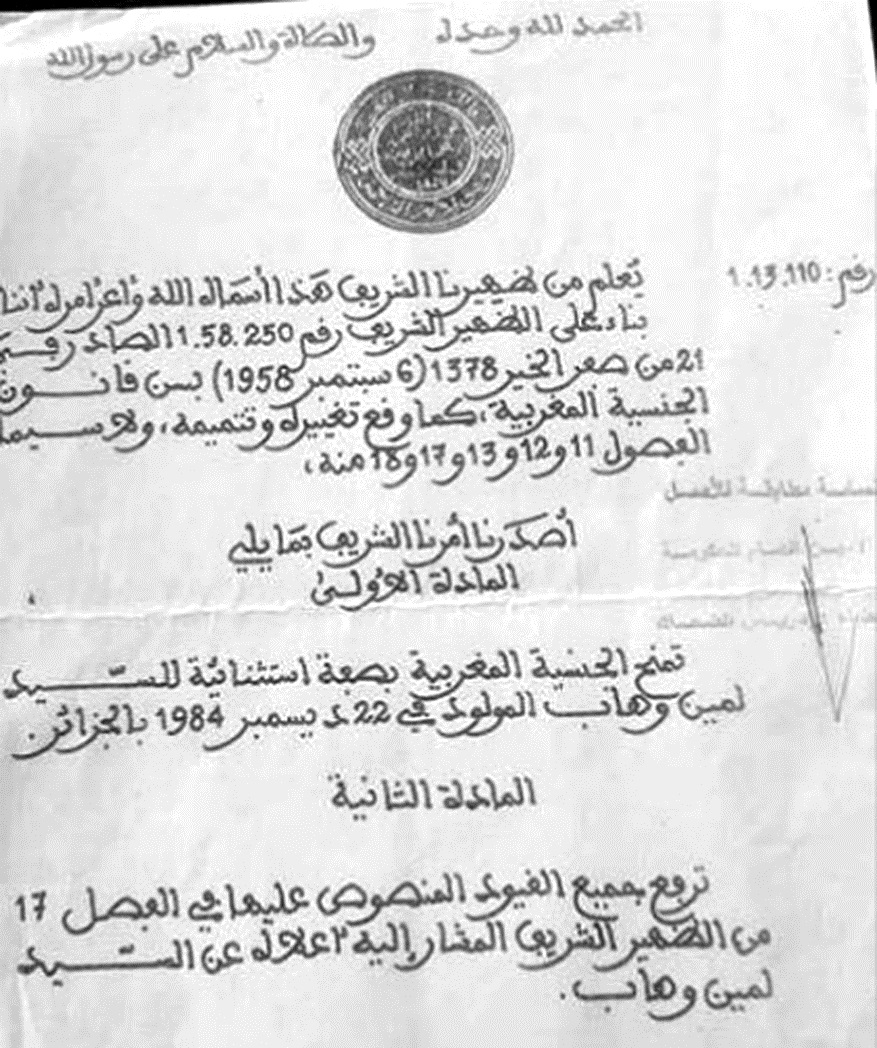 الحمد لله وحده والصلاة والسلام على رسول الله
رقم : 1.13.110
يُعلم من ظهيرنا الشريف هذا أسماه الله وأعز أمره أننا
بناء على الظهير الشريف رقم 1.58.250 الصادر في
21 من صفر الخير 1378 (6 سبتمبر 1958) بسن قانون
الجنسية المغربية، كما وقع تغييره وتتميمه، ولا سيما
الفصول 11 و12 و13 و17 و18 منه،
نسخة مطابقة للأصل
الأمين العام للحكومة
إدريس الضحاك
أصدرنا أمرنا الشريف بما يلي
المادة الأولى
تمنح الجنسية المغربية بصفة استثنائية للسّيد
لمين وهاب المولود في 22 ديسمبر 1984 بالجزائر.
المادة الثانية
ترفع جميع القيود المنصوص عليها في الفصل 17
من الظهير الشريف المشار إليه أعلاه عن السّيد
لمين وهاب.